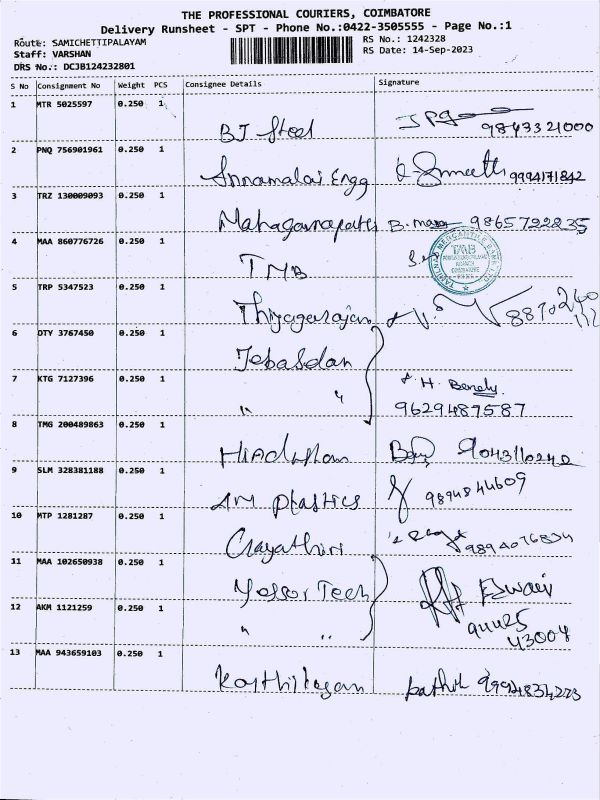 THE PROFESSIONAL COURIERS, COIMBATORE
Delivery Runsheet - SPT - Phone No.:0422-3505555 - Page No.:1
Route: SAMICHETTIPALAYAM
RS No.: 1242328
Staff: VARSHAN
RS Date: 14-Sep-2023
DRS No.: DCJB124232801
S No Consignment No Weight PCS Consignee Details Signature
1 MTR 5025597 0.250 1
BJ Steel 9843321000
2 PNQ 756901961 0.250 1
Annamalai Engg 9994171842
3 TRZ 130009093 0.250 1
Mahaganapathi B. 9865722235
4 MAA 860776726 0.250 1
TMB
TAMILNAD MERCANTILE BANK LTD
TMB
BRANCH
COIMBATORE
5 TRP 5347523 0.250 1
Thiyagarajan
6 DTY 3767450 0.250 1
Jebasdan
7 KTG 7127396 0.250 1
" " 9629487587
8 TMG 200489863 0.250 1
Hindustan 9043110240
9 SLM 328381188 0.250 1
AM Plastics 9894844609
10 MTP 1281287 0.250 1
Gayathiri 9894076834
11 MAA 102650938 0.250 1
Tech
12 AKM 1121259 0.250 1
" " 94425
43004
13 MAA 943659103 0.250 1
Karthikeyan 9994834223